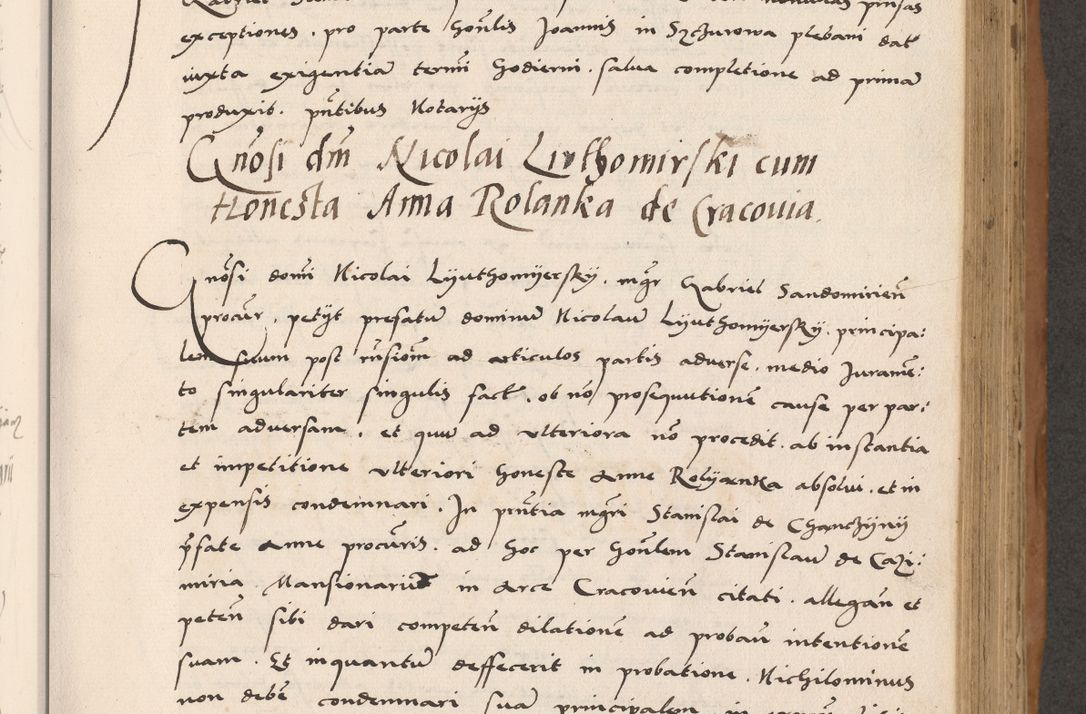 exceptiones . pro parte hon̄lis Joannis in Szczurowa plebani dat̄
iuxta exigentiā termi hodierni . salua completione ad primā
produxit . pn̄tibus Notarijs
Gn̄osi dn̄i Nicolai Liuthomirski cum
Honesta Anna Rolanka de Cracouia.
Gn̄osi domi Nicolai Lyuthomyersky . mgr̄ Gabriel Sandomirien̄
procur̄ . petyt prefatū dominū Nicolaū Lyuthomyersky . principa:
lem suum post rn̄siom̄ ad articulos partis aduerse . medio Juramē:
to singulariter singulis fact̄ . ob nō prosequutionē cause per par:
tem aduersam . et quia ad vlteriora nō procedit . ab instantia
et impetitione vlteriori honeste Anne Rolyanka absolui . et in
expensis condemnari . In pn̄tia mgr̄i Stanislai de Chanczyny
p̄fate Anne procur̄is . ad hoc per hon̄lem Stanislaū de Cazi:
miria Mansionariū in Arce Cracouien̄ citati . allegan̄ et
peten̄ sibi dari competen̄ dilationē ad proban̄ intentionē
suam . Et inquantū deffecerit in probatione . Nichilominus
non debē condemnari suā principalem in